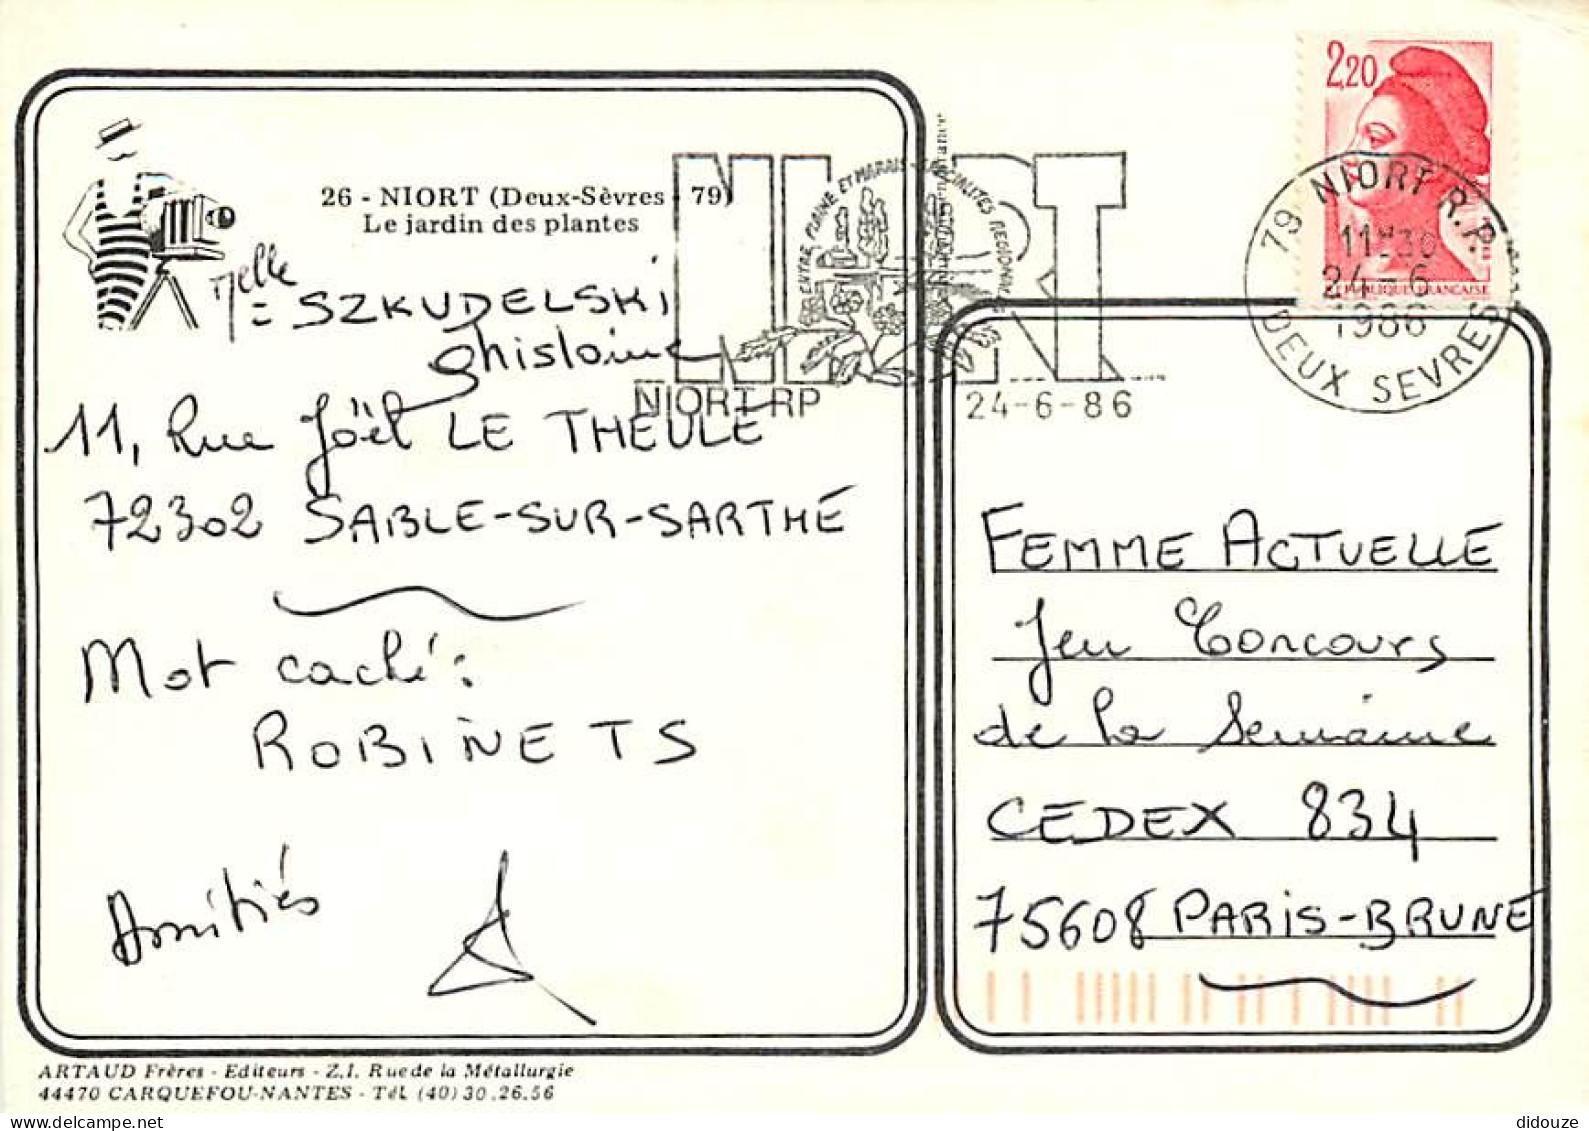 26 - NIORT (Deux-Sèvres - 79)
Le jardin des plantes
Melle = SZKUDELSKI
Ghislaine
11, Rue Joël LE THEULE
72302 SABLE-SUR-SARTHE
Mot caché:
ROBINETS
Amitiés
ARTAUD Frères - Editeurs - Z.I. Rue de la Métallurgie
44470 CARQUEFOU-NANTES - Tél. (40) 30.26.56
NIORT
ENTRE PLAINE ET MARAIS SPECIALITES REGIONALES
NIORT RP
24-6-86
2,20
REPUBLIQUE FRANÇAISE
79 NIORT R.P.
11H30
24-6
1986
DEUX SEVRES
FEMME ACTUELLE
Jeu Concours
de la Semaine
CEDEX 834
75608 PARIS-BRUNE
didouze